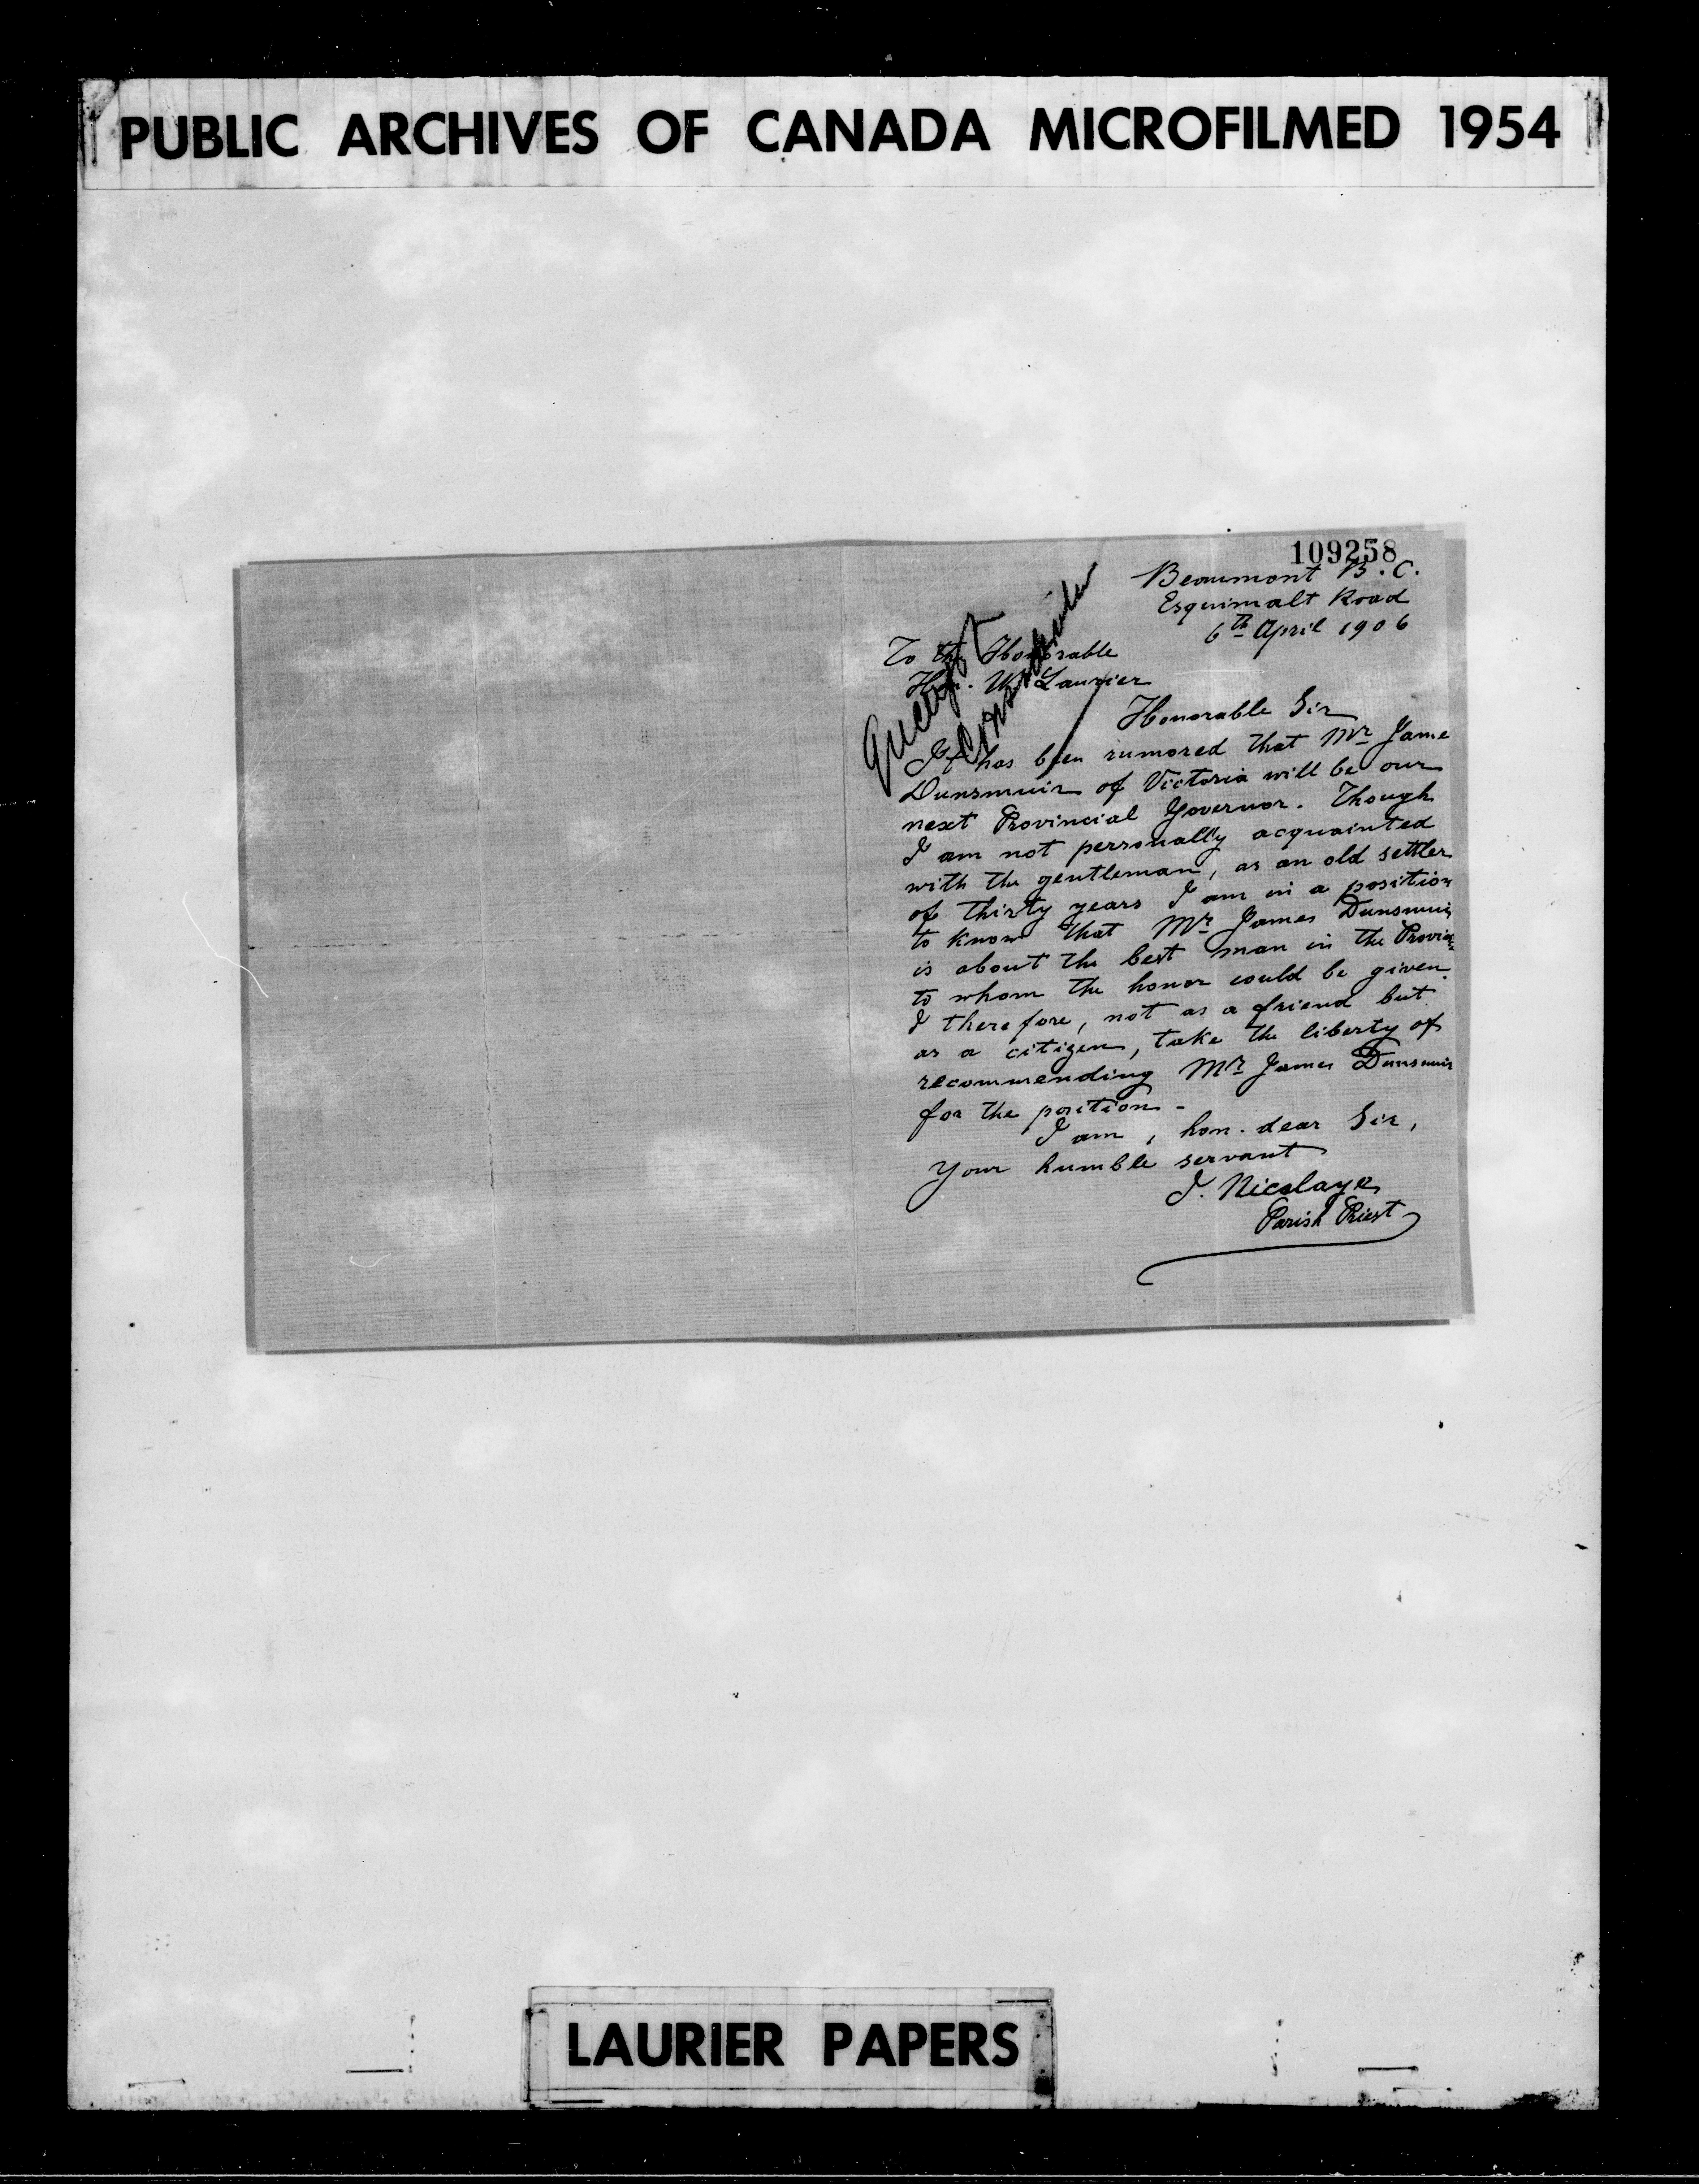 PUBLIC ARCHIVES OF CANADA MICROFILMED 1954
109258
Beaumont B. C.
Esquimalt Road
6th April 1906
To the Honorable
Hon. W. Laurier
Honorable Sir
It has been rumored that Mr Jame
Dunsmuir of Victoria will be our
next Provincial Governor. Though
I am not personally acquainted
with the gentleman, as an old settler
of thirty years I am in a position
to know that Mr James Dunsmuir
is about the best man in the Provin
to whom the honor could be given.
I therefore, not as a friend but
as a citizen, take the liberty of
recommending Mr James Dunsmuir
for the position -
I am, hon. dear Sir,
Your humble servant
J. Nicolaye
Parish Priest
LAURIER PAPERS